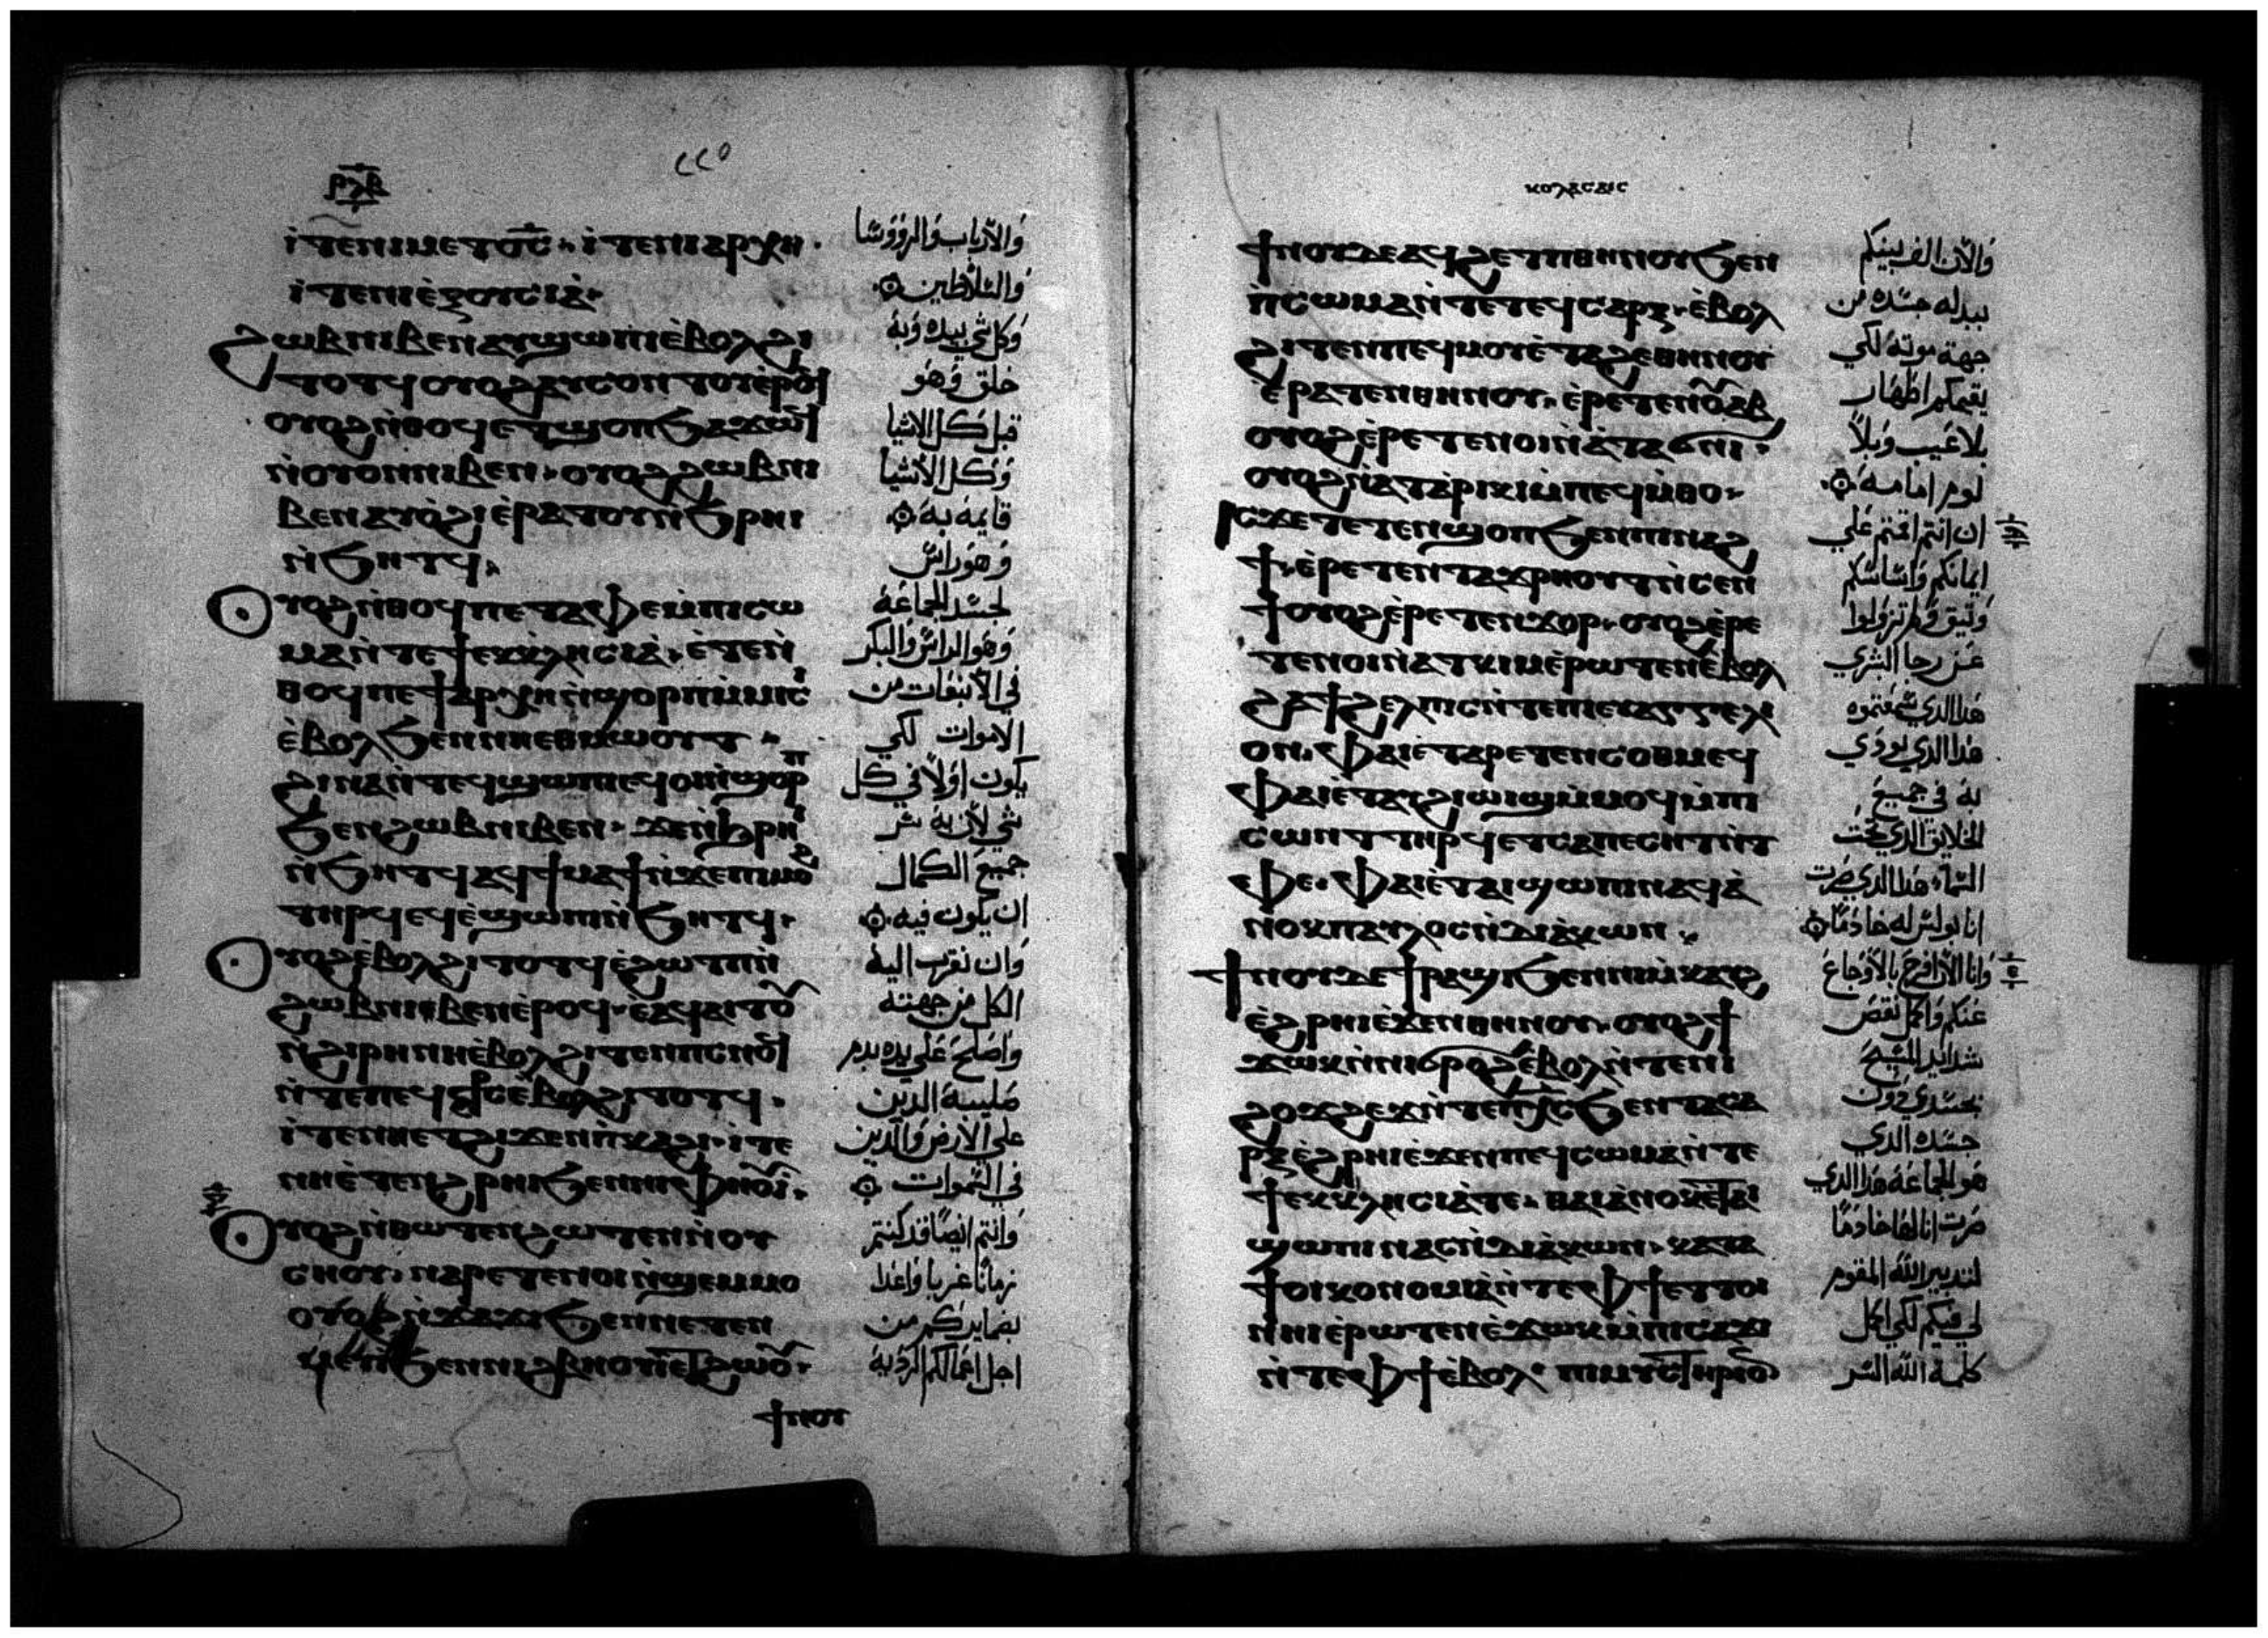 ⲣⲗⲃ
٢٢٥
ⲓⲧⲉⲛⲓⲙⲉⲧⲟ̅ⲥ̅ · ⲓⲧⲉⲛⲓⲁⲣⲭⲏ ·
ⲓⲧⲉⲛⲓⲉ̀ⲝⲟⲩⲥⲓⲁ̀ ·
ϩⲱⲃⲛⲓⲃⲉⲛⲁⲩϣⲱⲡⲓⲉ̀ⲃⲟⲗϩⲓ
ⲧⲟⲧϥⲟⲩⲟϩⲁⲩⲥⲟⲛⲧⲟⲩⲉ̀ⲣⲟϥ
ⲟⲩⲟϩⲛ̀ⲑⲟϥⲉⲧϣⲟⲡϧⲁϫⲱϥ
ⲛ̀ⲟⲩⲟⲛⲛⲓⲃⲉⲛ · ⲟⲩⲟϩϩⲱⲃⲛⲓ
ⲃⲉⲛⲁⲩⲟ̀ϩⲓⲉ̀ⲣⲁⲧⲟⲩⲛ̀ϧⲣⲏⲓ
ⲛ̀ϧⲏⲧϥ ·
ⲟⲩⲟϩⲛ̀ⲑⲟϥⲡⲉⲧⲁⲫⲉⲙ̀ⲡⲓⲥⲱ
ⲙⲁⲛ̀ⲧⲉϯⲉⲕⲕⲗⲏⲥⲓⲁ̀ · ⲉ̀ⲧⲉⲛ̀
ⲑⲟϥⲡⲉϯⲁⲣⲭⲏⲛ̀ϣⲟⲣⲡⲙ̀ⲙⲓⲥⲓ
ⲉ̀ⲃⲟⲗϧⲉⲛⲛⲏⲉⲑⲙⲱⲟⲩⲧ ·
ϩⲓⲛⲁⲛ̀ⲧⲉϥϣⲱⲡⲓⲉϥⲟⲓⲛ̀ϣⲟⲣⲡ
ϧⲉⲛϩⲱⲃⲛⲓⲃⲉⲛ · ϫⲉⲛ̀ϩⲣⲏⲓ
ⲛ̀ϧⲏⲧϥⲁϥϯⲙⲁϯⲛ̀ϫⲉⲡⲓⲙⲟϩ
ⲧⲏⲣϥⲉϥⲉ̀ϣⲱⲡⲓⲛ̀ϧⲏⲧϥ ·
ⲟⲩⲟϩⲉ̀ⲃⲟⲗϩⲓⲧⲟⲧϥⲉ̀ϩⲱⲧⲡⲛ̀
ϩⲱⲃⲛⲓⲃⲉⲛⲉ̀ⲣⲟϥ · ⲉ̀ⲁϥⲁⲓⲧⲟⲩ
ⲛ̀ϩⲓⲣⲏⲛⲏⲉ̀ⲃⲟⲗϩⲓⲧⲉⲛⲡⲥⲛⲟϥ
ⲛ̀ⲧⲉⲡⲉϥⲥⳁⲥⲉ̀ⲃⲟⲗϩⲓⲧⲟⲧϥ ·
ⲓⲧⲉⲛⲏⲉⲧϩⲓϫⲉⲛⲡ̀ⲕⲁϩⲓ · ⲓⲧⲉ
ⲛⲏⲉ̀ⲧⲉⲛϩⲣⲏⲓϧⲉⲛⲛⲓⲫⲏⲟⲩⲓ ·
ⲟⲩⲟϩⲛ̀ⲑⲱⲧⲉⲛϩⲱⲧⲉⲛⲛ̀ⲟⲩ
ⲥⲏⲟⲩ · ⲛⲁⲣⲉⲧⲉⲛⲟⲓⲛ̀ϣⲉⲙⲙⲟ
ⲟⲩⲟϩⲛ̀ϫⲁϫⲓϧⲉⲛⲛⲉⲧⲉⲛ
ⲙⲉⲩⲓϧⲉⲛⲛⲓϩⲃⲏⲟⲩⲓⲉⲧϩⲱⲟⲩ ·
ϯⲛⲟⲩ
والارباب والرووسا
والسلاطين
وكل شي بيده وبه
خلق وهو
قبل كل الاشيا
وكل الاشيا
قايمه به
وهو راس
لجسد الجماعة
وهو الراس والبكر
في الانبعات من
الاموات لكي
يكون اولا في كل
شي لان به سر
جميع الكمال
ان يكون فيه
وان نقرب اليه
الكل من جهته
واصلح علي يده بدم
صليبه الدين
علي الارض والدين
في السموات
وانتم ايضا قد كنتم
زمانا غربا واعدا
بضمايركم من
اجل اعمالكم الرديه
ⲕⲟⲗⲁⲥⲁⲓⲥ
ϯⲛⲟⲩⲇⲉⲁϥϩⲉⲧⲡⲑⲏⲛⲟⲩϧⲉⲛ
ⲡ̀ⲥⲱⲙⲁⲛ̀ⲧⲉⲧⲉϥⲥⲁⲣⲝ · ⲉ̀ⲃⲟⲗ
ϩⲓⲧⲉⲛⲡⲉϥⲙⲟⲩⲉ̀ⲧⲁϩⲉⲑⲏⲛⲟⲩ
ⲉ̀ⲣⲁⲧⲉⲛⲑⲏⲛⲟⲩ · ⲉ̀ⲣⲉⲧⲉⲛⲟⲩⲁⲃ
ⲟⲩⲟϩⲉ̀ⲣⲉⲧⲉⲛⲟⲓⲛ̀ⲁ̀ⲧⲁϭⲛⲓ ·
ⲟⲩⲟϩⲛ̀ⲁⲧⲁ̀ⲣⲓⲕⲓⲙ̀ⲡⲉϥⲙ̀ⲑⲟ ·
ⲓⲥϫⲉⲧⲉⲧⲉⲛϣⲟⲡϧⲉⲛⲡⲓⲛⲁϩ
ϯ · ⲉ̀ⲣⲉⲧⲉⲛⲧⲁϫⲣⲏⲟⲩⲧⲛ̀ⲥⲉⲛ
ϯⲟⲩⲟϩⲉ̀ⲣⲉⲧⲉⲛϫⲟⲣ · ⲟⲩⲟϩⲉ̀ⲣⲉ
ⲧⲉⲛⲟⲓⲛ̀ⲁⲧⲕⲓⲙⲉ̀ⲣⲱⲧⲉⲛⲉ̀ⲃⲟⲗ
ϩⲁϯϩⲉⲗⲡⲓⲥⲛ̀ⲧⲉⲡⲓⲉⲩⲁⲅⲅⲉⲗⲓ
ⲟⲛ · ⲫⲁⲓⲉ̀ⲧⲁⲣⲉⲧⲉⲛⲥⲟⲑⲙⲉϥ
ⲫⲁⲓⲉ̀ⲧⲁⲩϩⲓⲱⲓϣⲙ̀ⲙⲟϥⲙ̀ⲡⲓ
ⲥⲱⲛⲧⲧⲏⲣϥⲉⲧⲥⲁⲡⲉⲥⲏⲧⲛ̀ⲧ
ⲫⲉ · ⲫⲁⲓⲉ̀ⲧⲁⲓϣⲱⲡⲓⲛⲁϥⲁ̀
ⲛⲟⲕⲡⲁⲩⲗⲟⲥⲛ̀ⲇⲓⲁ̀ⲕⲱⲛ ·
ϯⲛⲟⲩⲇⲉϯⲣⲁϣⲓϧⲉⲛⲛⲓⲙ̀ⲕⲁⲩϩ
ⲉ̀ϩⲣⲏⲓⲉ̀ϫⲉⲛⲑⲏⲛⲟⲩ · ⲟⲩⲟϩϯ
ϫⲱⲕⲛ̀ⲛⲓϭⲣⲟϩⲉ̀ⲃⲟⲗⲛ̀ⲧⲉⲛⲓ
ϩⲟϫϩⲉϫⲛ̀ⲧⲉⲡⲭ̅ⲥ̅ϧⲉⲛⲧⲁⲥⲁ
ⲣⲝⲉ̀ϩⲣⲏⲓⲉ̀ϫⲉⲛⲡⲉϥⲥⲱⲙⲁⲛ̀ⲧⲉ
ϯⲉⲕⲕⲗⲏⲥⲓⲁ̀ⲧⲉ · ⲑⲁⲓⲁ̀ⲛⲟⲕⲉ̀ⲧⲁⲓ
ϣⲱⲡⲓⲛⲁⲥⲛ̀ⲇⲓⲁ̀ⲕⲱⲛ · ⲕⲁⲧⲁ
ϯⲟⲓⲕⲟⲛⲟⲙⲓⲁ̀ⲛ̀ⲧⲉⲫϯⲉⲧⲧⲟⲓ
ⲛⲏⲓⲉ̀ⲣⲱⲧⲉⲛⲉ̀ϫⲱⲕⲙ̀ⲡⲓⲥⲁϫⲓ
ⲛ̀ⲧⲉⲫϯⲉ̀ⲃⲟⲗ · ⲡⲓⲙⲩⲥⲧⲏⲣⲓⲟⲛ
والان الف بينكم
ببدله جسده من
جهة موته لكي
يقيمكم اطهار
بلا عيب وبلا
لوم امامه
ان انتم اقمتم علي
ايمانكم واساسكم
وتيق ولم تزولوا
عن رجا البشري
هدا الدي سمعتموه
هدا الدي نودي
به في جميع
الخلايق الدي تحت
السماء هدا الدي صرت
انا بولس له خادما
وانا الان افرح بالاوجاع
عنكم واكمل نقص
شدايد المسيح
بجسدي دون
جسده الدي
هو الجماعة هدا الدي
صرت انا لها خادما
لتدبير الله المقوم
لي فيكم لكي اكمل
كلمة الله السر